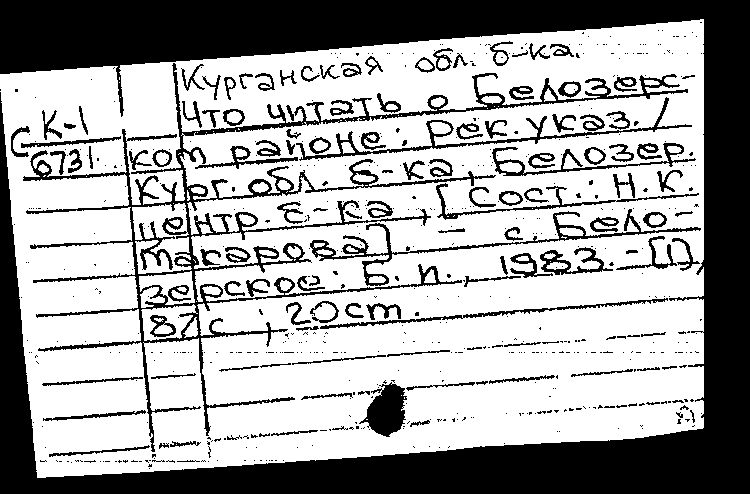 Курганская обл. б-ка.
Что читать о Белозерс-
С К-1
6731. ком районе: рек. указ. /
Кург. обл. б-ка, Белозер.
центр. б-ка ; [Сост.: Н.К.
Макарова]. – с. Бело-
зерское: Б. и., 1983. - [1],
87 с ; 20 cm.